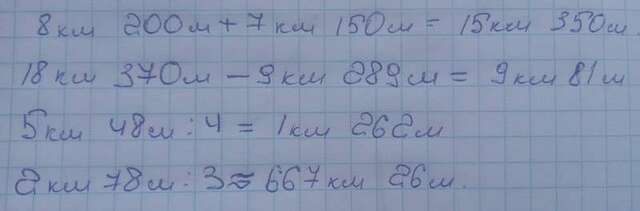 8 км 200м + 7 км 150м = 15км 350м
18 км 370м - 9 км 289м = 9км 81м
5км 48м : 4 = 1км 262м
2км 78м : 3 ≈ 667 км 26м.